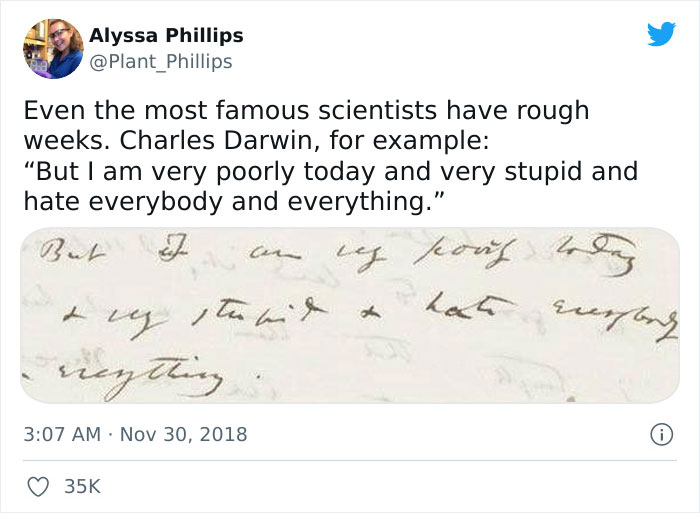 Alyssa Phillips
@Plant_Phillips
Even the most famous scientists have rough
weeks. Charles Darwin, for example:
“But I am very poorly today and very stupid and
hate everybody and everything.”
But I am very poorly today
& very stupid & hate everybody
& everything.
3:07 AM · Nov 30, 2018
35K